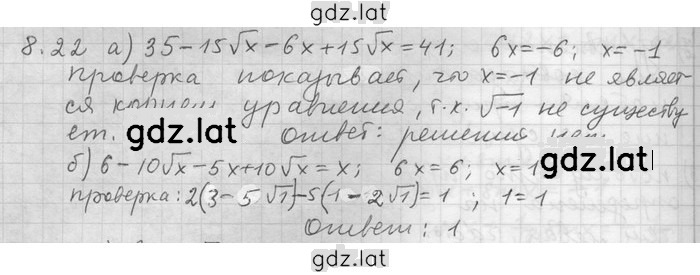 gdz.lat
8.22 а) 35-15√x-6x+15√x=41; 6x=-6; x=-1
проверка показывает, что x=-1 не являет-
ся корнем уравнения, т.к. √-1 не существу
ет. gdz.lat Ответ: решений нет.
б) 6-10√x-5x+10√x=x; 6x=6; x=1 gdz.lat
проверка: 2(3-5√1)-5(1-2√1)=1; 1=1
Ответ: 1
gdz.lat